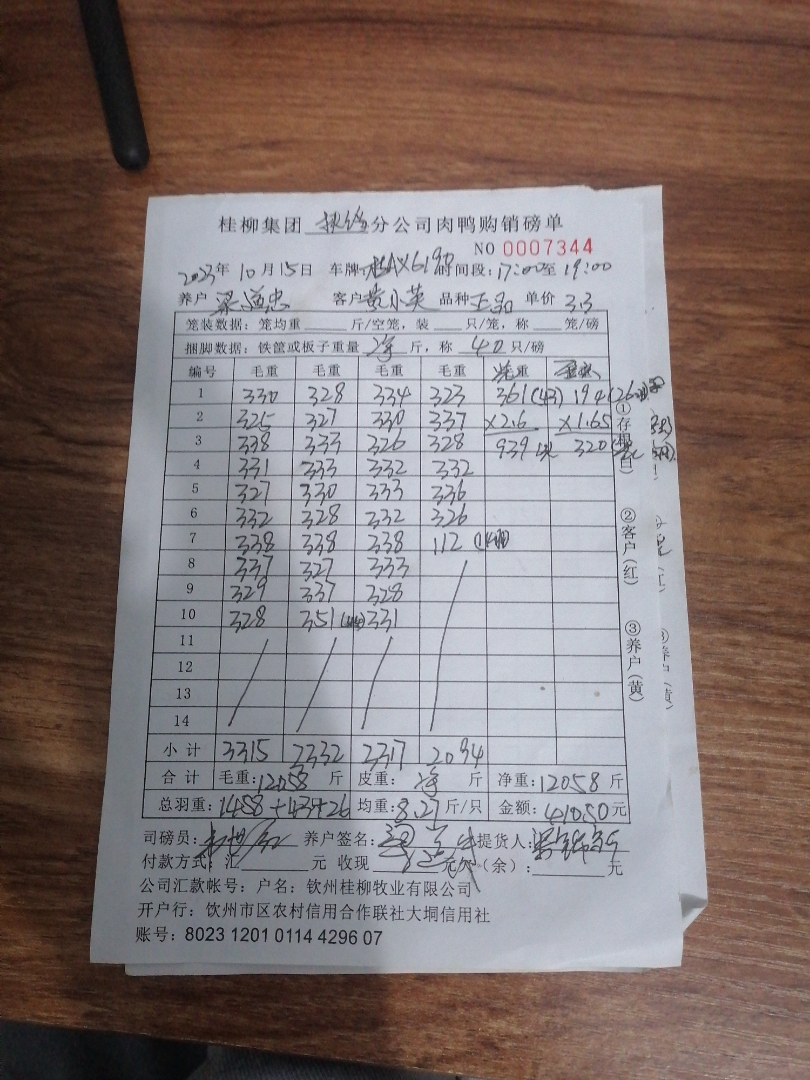 桂柳集团 分公司肉鸭购销磅单
NO 0007344
2023年 10月15日 车牌 时间段:17:00至19:00
养户 梁道忠 客户 黄小英 品种 单价 3.3
笼装数据：笼均重____斤/空笼，装____只/笼，称____笼/磅
捆脚数据：铁筐或板子重量 净 斤，称 40 只/磅
编号 毛重 毛重 毛重 毛重 重
1 330 328 334 323 361(43) 194(26
2 325 327 330 337 ×2.6 ×1.65
3 338 333 326 328 939 320
4 331 333 332 332
5 327 330 333 336
6 332 328 332 326
7 338 338 338 112
8 337 327 333
9 329 337 328
10 328 351 331
11
12
13
14
小计 3315 3332 3317 2094
合计 毛重:12058 斤 皮重: 净 斤 净重:12058 斤
总羽重:1458+43+26 均重:8.27斤/只 金额:41050元
司磅员: 养户签名: 提货人:
付款方式：汇____元 收现 元 欠（余）：____元
公司汇款帐号：户名：钦州桂柳牧业有限公司
开户行：钦州市区农村信用合作联社大垌信用社
账号：8023 1201 0114 4296 07
①存根(白)
②客户(红)
③养户(黄)